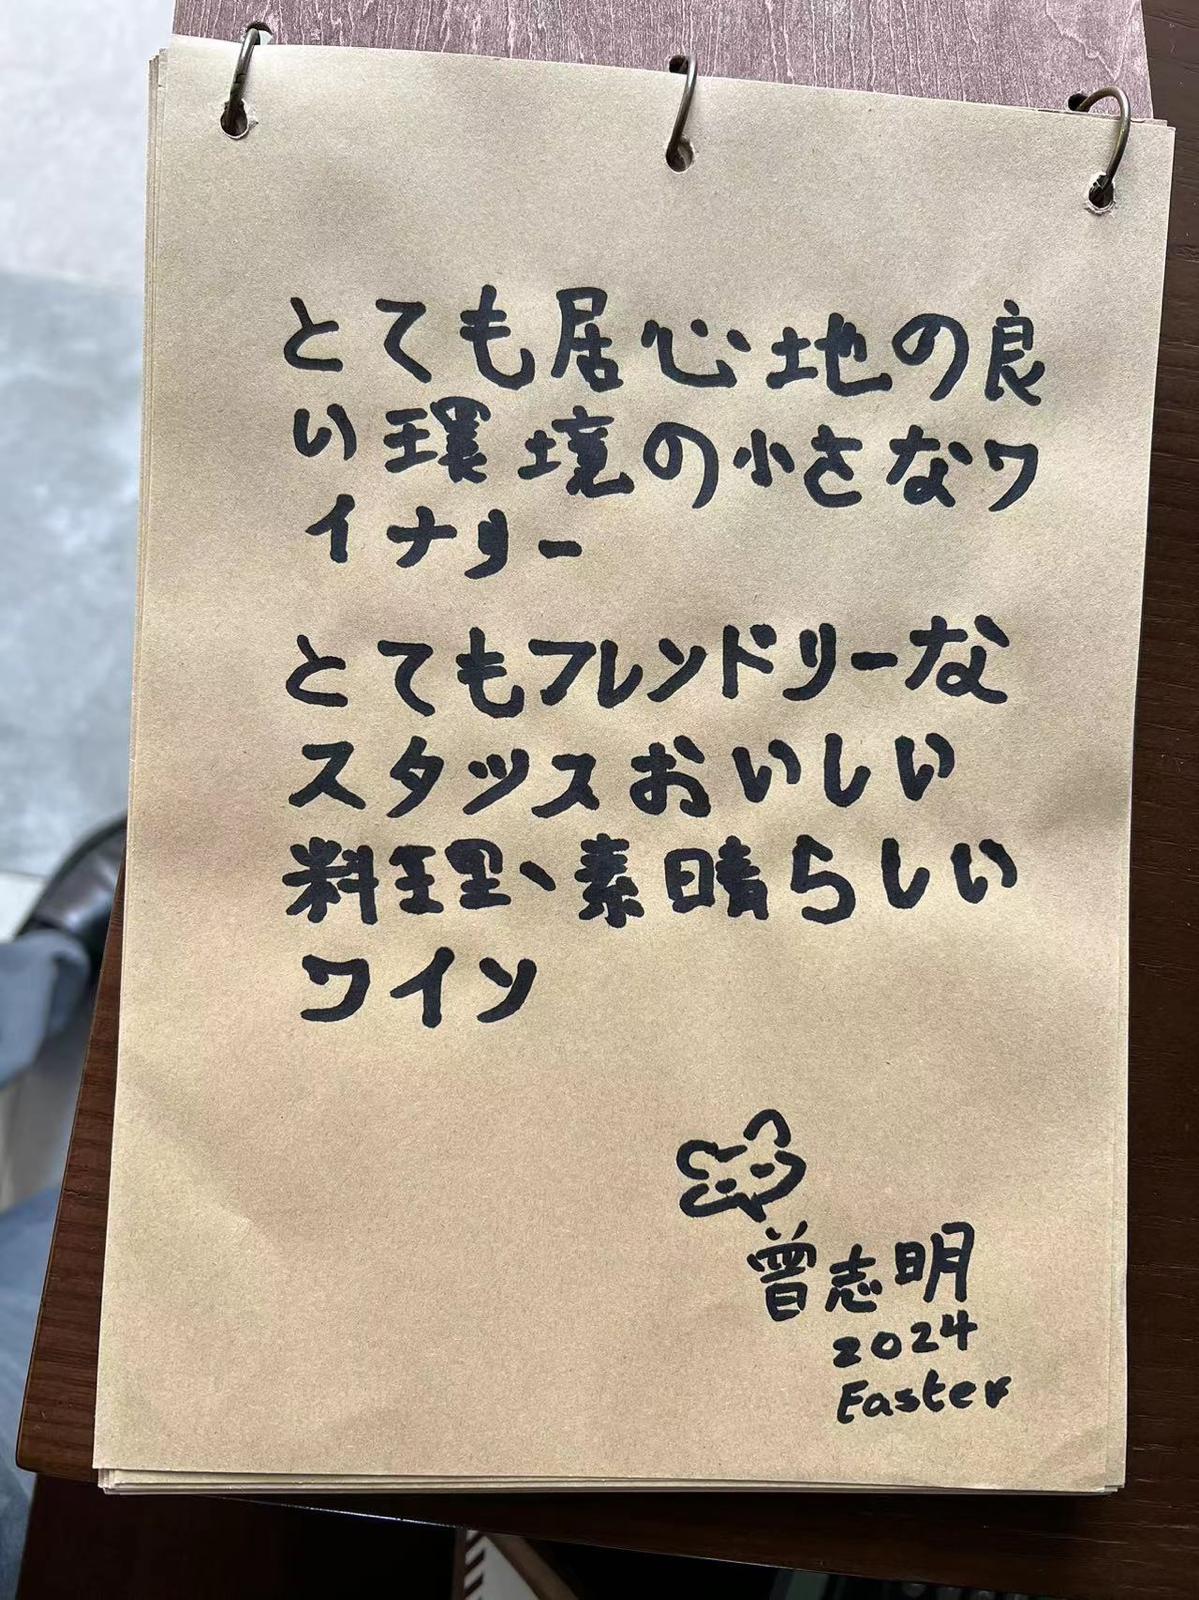 とても居心地の良
い環境の小さなワ
イナリー
とてもフレンドリーな
スタツスおいしい
料理、素晴らしい
ワイン
曾志明
2024
Easter